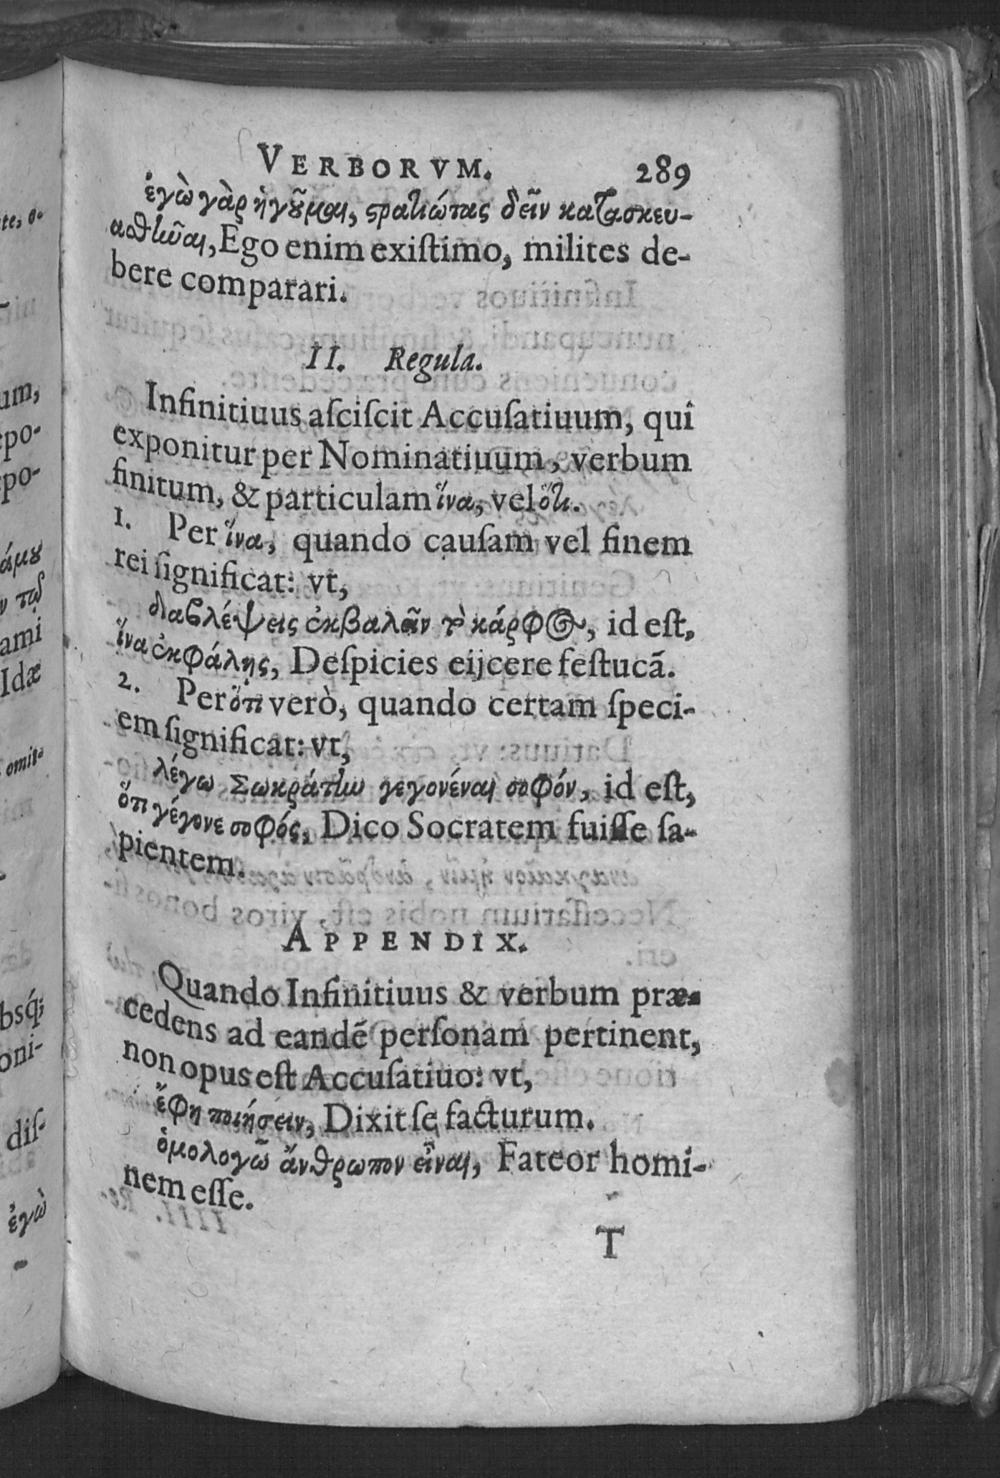 VERBORVM. 289
ἐγὼ γὰρ ἡγοῦμαι, στρατιώτας δεῖν κατασκευ-
ασθῆναι, Ego enim existimo, milites de-
bere comparari.
II. Regula.
Infinitiuus asciscit Accusatiuum, qui
exponitur per Nominatiuum, verbum
finitum, & particulam ἵνα, vel ὅτι.
1. Per ἵνα, quando causam vel finem
rei significat: vt,
διαβλέψεις ἐκβαλεῖν τὸ κάρφος, id est,
ἵνα ἐκφάλῃς, Despicies eijcere festucã.
2. Per ὅτι verò, quando certam speci-
em significat: vt,
λέγω Σωκράτην γεγονέναι σοφόν, id est,
ὅτι γέγονε σοφός, Dico Socratem fuisse sa-
pientem.
APPENDIX.
Quando Infinitiuus & verbum præ-
cedens ad eandẽ personam pertinent,
non opus est Accusatiuo: vt,
ἔφη ποιήσειν, Dixit se facturum.
ὁμολογῶ ἄνθρωπον εἶναι, Fateor homi-
nem esse.
T